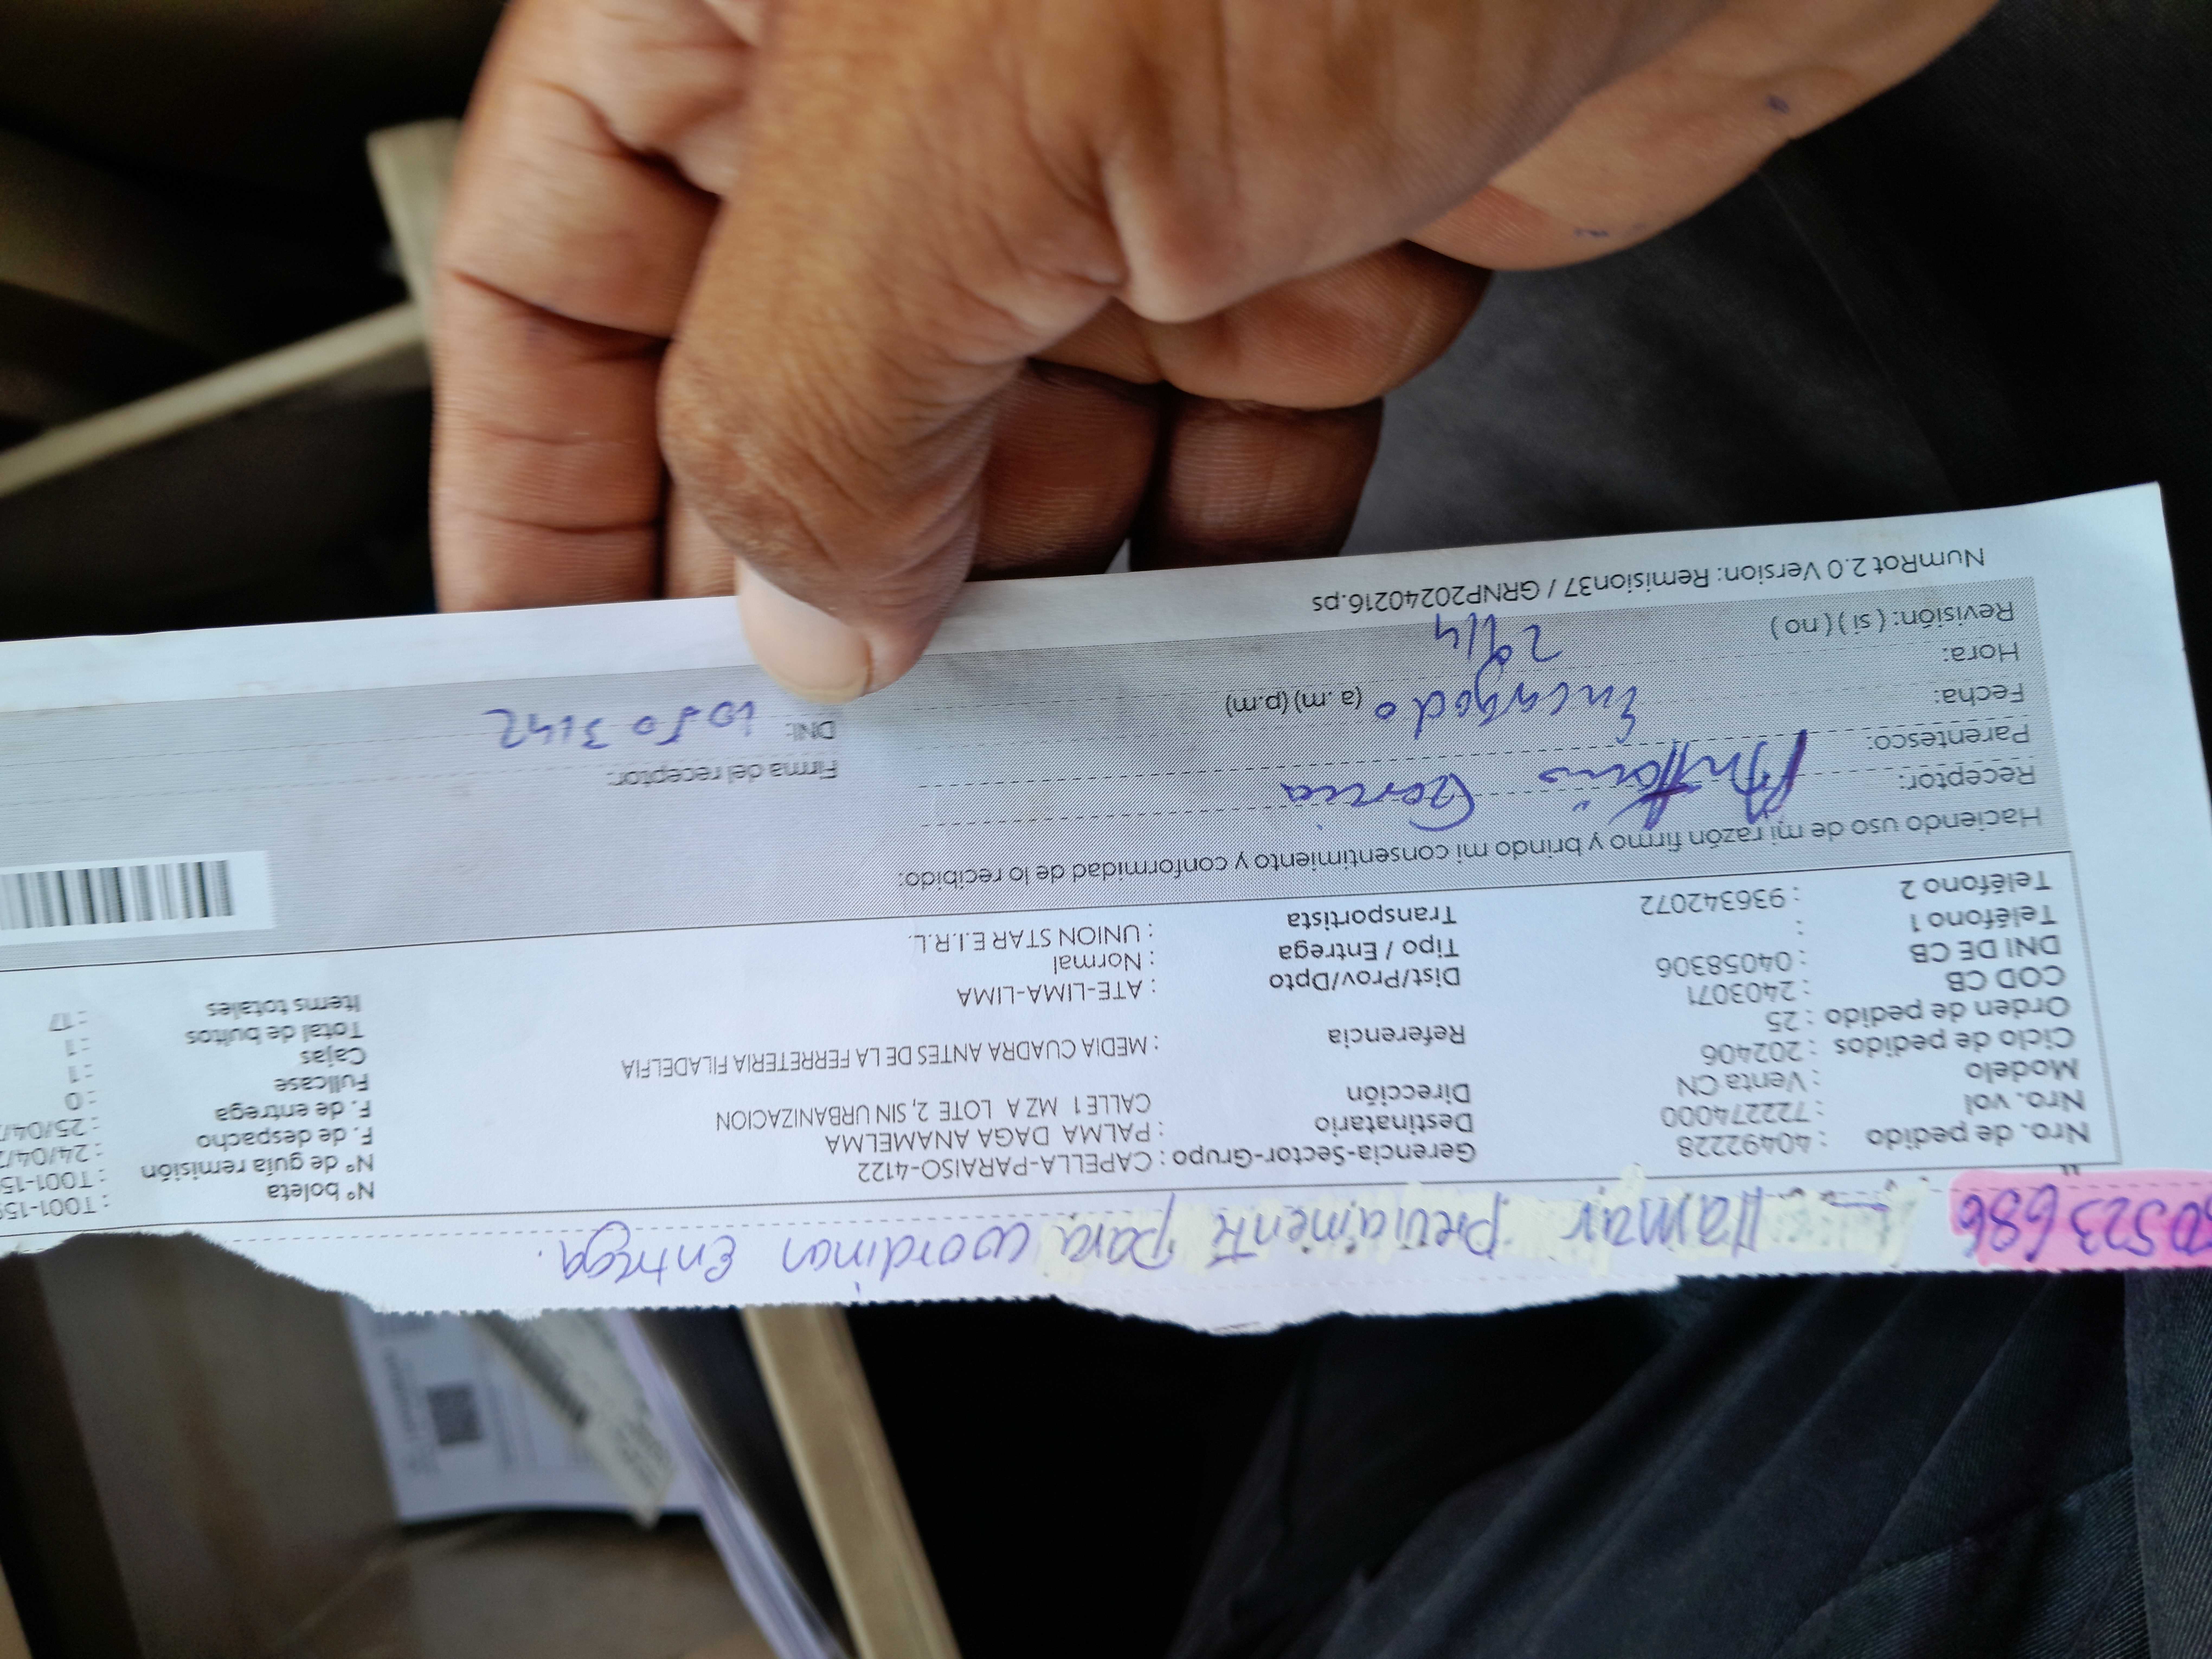 0523686 llamar previamente para coordinar Entrega.
Nro. de pedido : 40492228
Nro. vol : 722274000
Modelo : Venta CN
Ciclo de pedidos : 202406
Orden de pedido : 25
COD CB : 2403071
DNI DE CB : 04058306
Teléfono 1 :
Teléfono 2 : 936342072
Gerencia-Sector-Grupo : CAPELLA-PARAISO-4122
Destinatario : PALMA DAGA ANAMELMA
Dirección CALLE 1 MZ A LOTE 2, SIN URBANIZACION
Referencia : MEDIA CUADRA ANTES DE LA FERRETERIA FILADELFIA
Dist/Prov/Dpto : ATE-LIMA-LIMA
Tipo / Entrega : Normal
Transportista : UNION STAR E.I.R.L.
N° boleta : T001-15
N° de guía remisión : T001-15
F. de despacho : 24/04/
F. de entrega : 25/04/
Fullcase : 0
Cajas : 1
Total de bultos : 1
Items totales : 17
Haciendo uso de mi razón firmo y brindo mi consentimiento y conformidad de lo recibido:
Receptor: Garcia
Parentesco:
Fecha: Encargado
Hora: (a. m) (p.m)
29/4
Revisión: ( si ) ( no )
Firma del receptor:
DNI: 10503142
NumRot 2.0 Version: Remision37 / GRNP20240216.ps